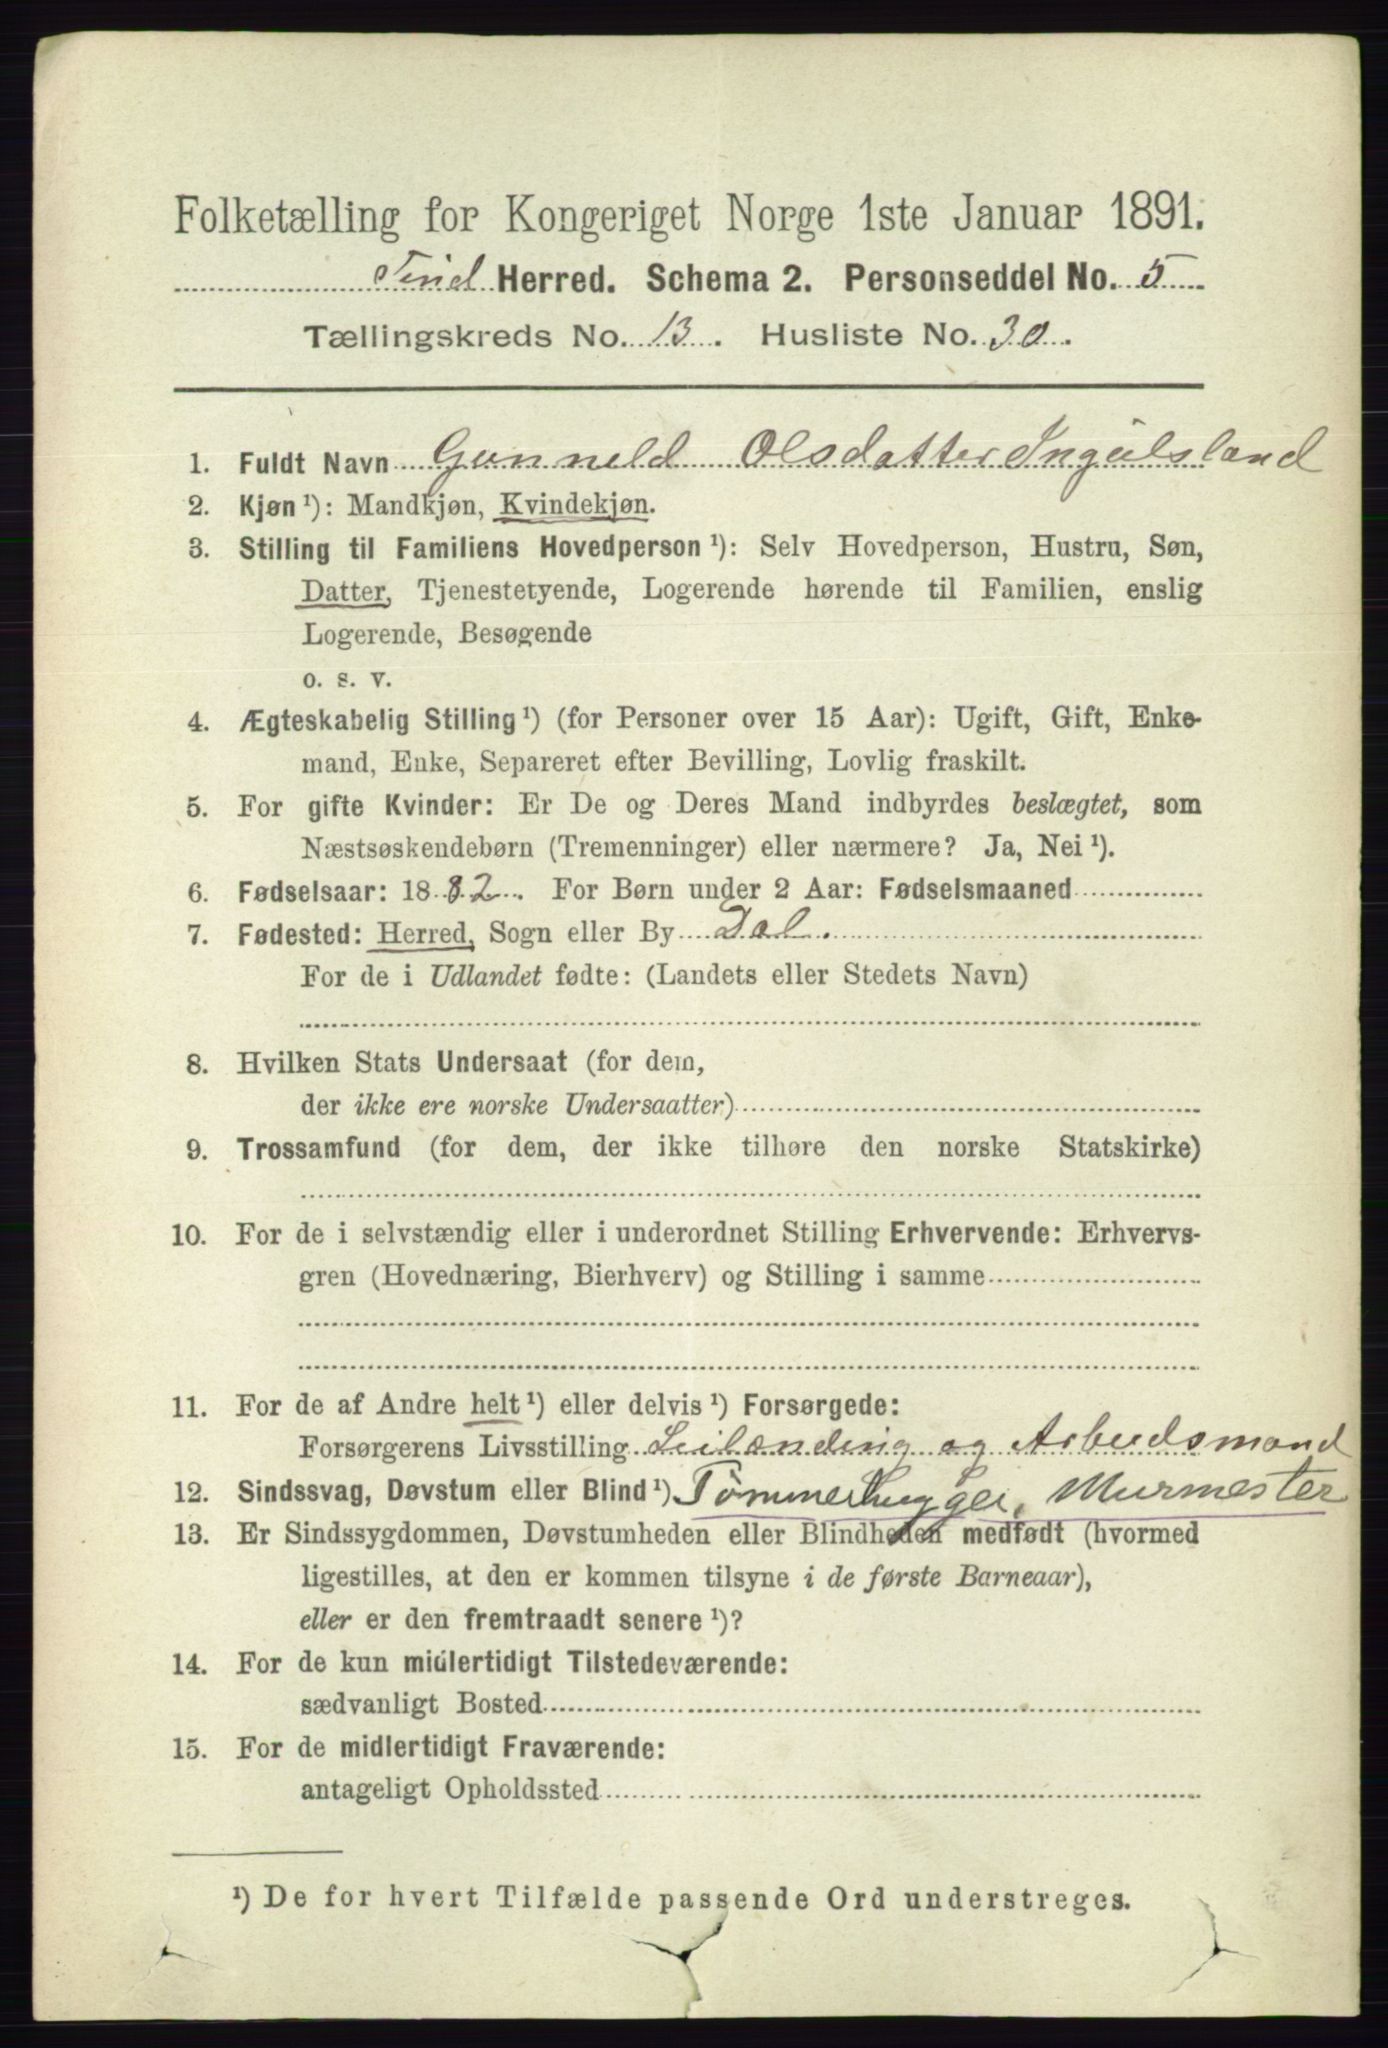 Folketælling for Kongeriget Norge 1ste Januar 1891.
Tind Herred. Schema 2. Personseddel No. 5
Tællingskreds No. 13. Husliste No. 30.
1. Fuldt Navn Gunneld Olsdatter Ingulsland
2. Kjøn ¹): Mandkjøn, Kvindekjøn.
3. Stilling til Familiens Hovedperson ¹): Selv Hovedperson, Hustru, Søn,
Datter, Tjenestetyende, Logerende hørende til Familien, enslig
Logerende, Besøgende
o. s. v.
4. Ægteskabelig Stilling ¹) (for Personer over 15 Aar): Ugift, Gift, Enke-
mand, Enke, Separeret efter Bevilling, Lovlig fraskilt.
5. For gifte Kvinder: Er De og Deres Mand indbyrdes beslægtet, som
Næstsøskendebørn (Tremenninger) eller nærmere? Ja, Nei ¹).
6. Fødselsaar: 1882. For Børn under 2 Aar: Fødselsmaaned
7. Fødested: Herred, Sogn eller By Dal.
For de i Udlandet fødte: (Landets eller Stedets Navn)
8. Hvilken Stats Undersaat (for dem,
der ikke ere norske Undersaatter)
9. Trossamfund (for dem, der ikke tilhøre den norske Statskirke)
10. For de i selvstændig eller i underordnet Stilling Erhvervende: Erhvervs-
gren (Hovednæring, Bierhverv) og Stilling i samme
11. For de af Andre helt ¹) eller delvis ¹) Forsørgede:
Forsørgerens Livsstilling Leilænding og Arbudsmand
12. Sindssvag, Døvstum eller Blind ¹) Tømmerhugger, Murmester
13. Er Sindssygdommen, Døvstumheden eller Blindheden medfødt (hvormed
ligestilles, at den er kommen tilsyne i de første Barneaar),
eller er den fremtraadt senere ¹)?
14. For de kun midlertidigt Tilstedeværende:
sædvanligt Bosted
15. For de midlertidigt Fraværende:
antageligt Opholdssted
¹) De for hvert Tilfælde passende Ord understreges.